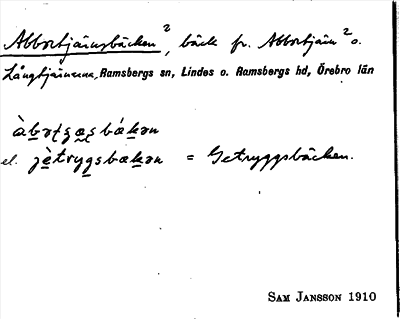 Abbortjärnsbäcken², bäck fr. Abbortjärn² o.
Långtjärnarna, Ramsbergs sn, Lindes o. Ramsbergs hd, Örebro län
el.
= Getryggsbäcken.
SAM JANSSON 1910